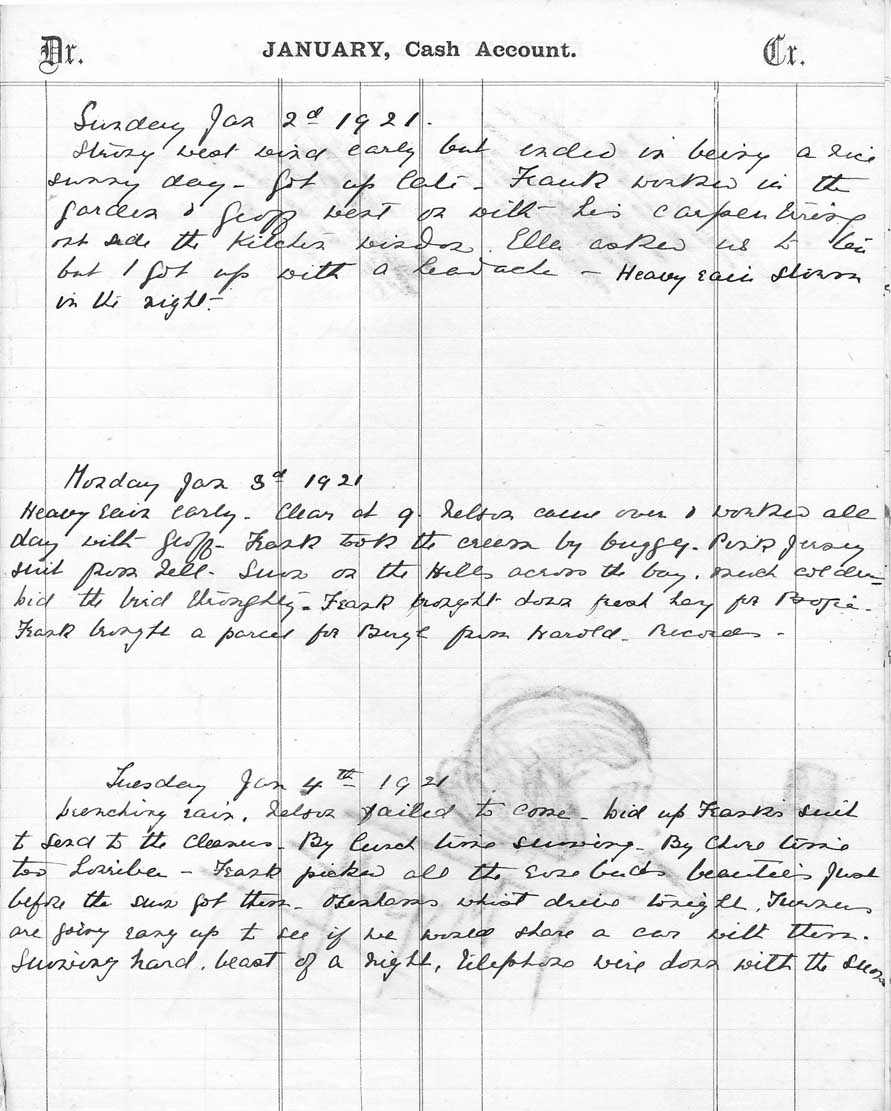 Dr. JANUARY, Cash Account. Cr.
Sunday Jan 2d 1921.
Strong west wind early but ended in being a nice
sunny day - Got up late - Frank worked in the
garden & Geoff went on with his carpentering
out side the kitchen window. Ella asked us to tea
but I got up with a headache - Heavy rain storm
in the night -
Monday Jan 3d 1921
Heavy rain early - Clear at 9. Nelson came over & worked all
day with Geoff - Frank took the cream by buggy - Pink Jersey
suit from Nell - Snow on the Hills across the bay, much colder -
did the bird thoroughly - Frank brought down fresh hay for
Frank brought a parcel for Beryl from Harold - Records -
Tuesday Jan 4th 1921
Drenching rain, Nelson failed to come - Did up Frank's suit
to send to the Cleaners - By lunch time snowing - By Chore time
too horrible - Frank picked all the rose buds beauties just
before the snow got them - whist drive tonight, Turners
are going rang up to see if we would share a car with them.
Snowing hard, beast of a night, telephone wire down with the snow